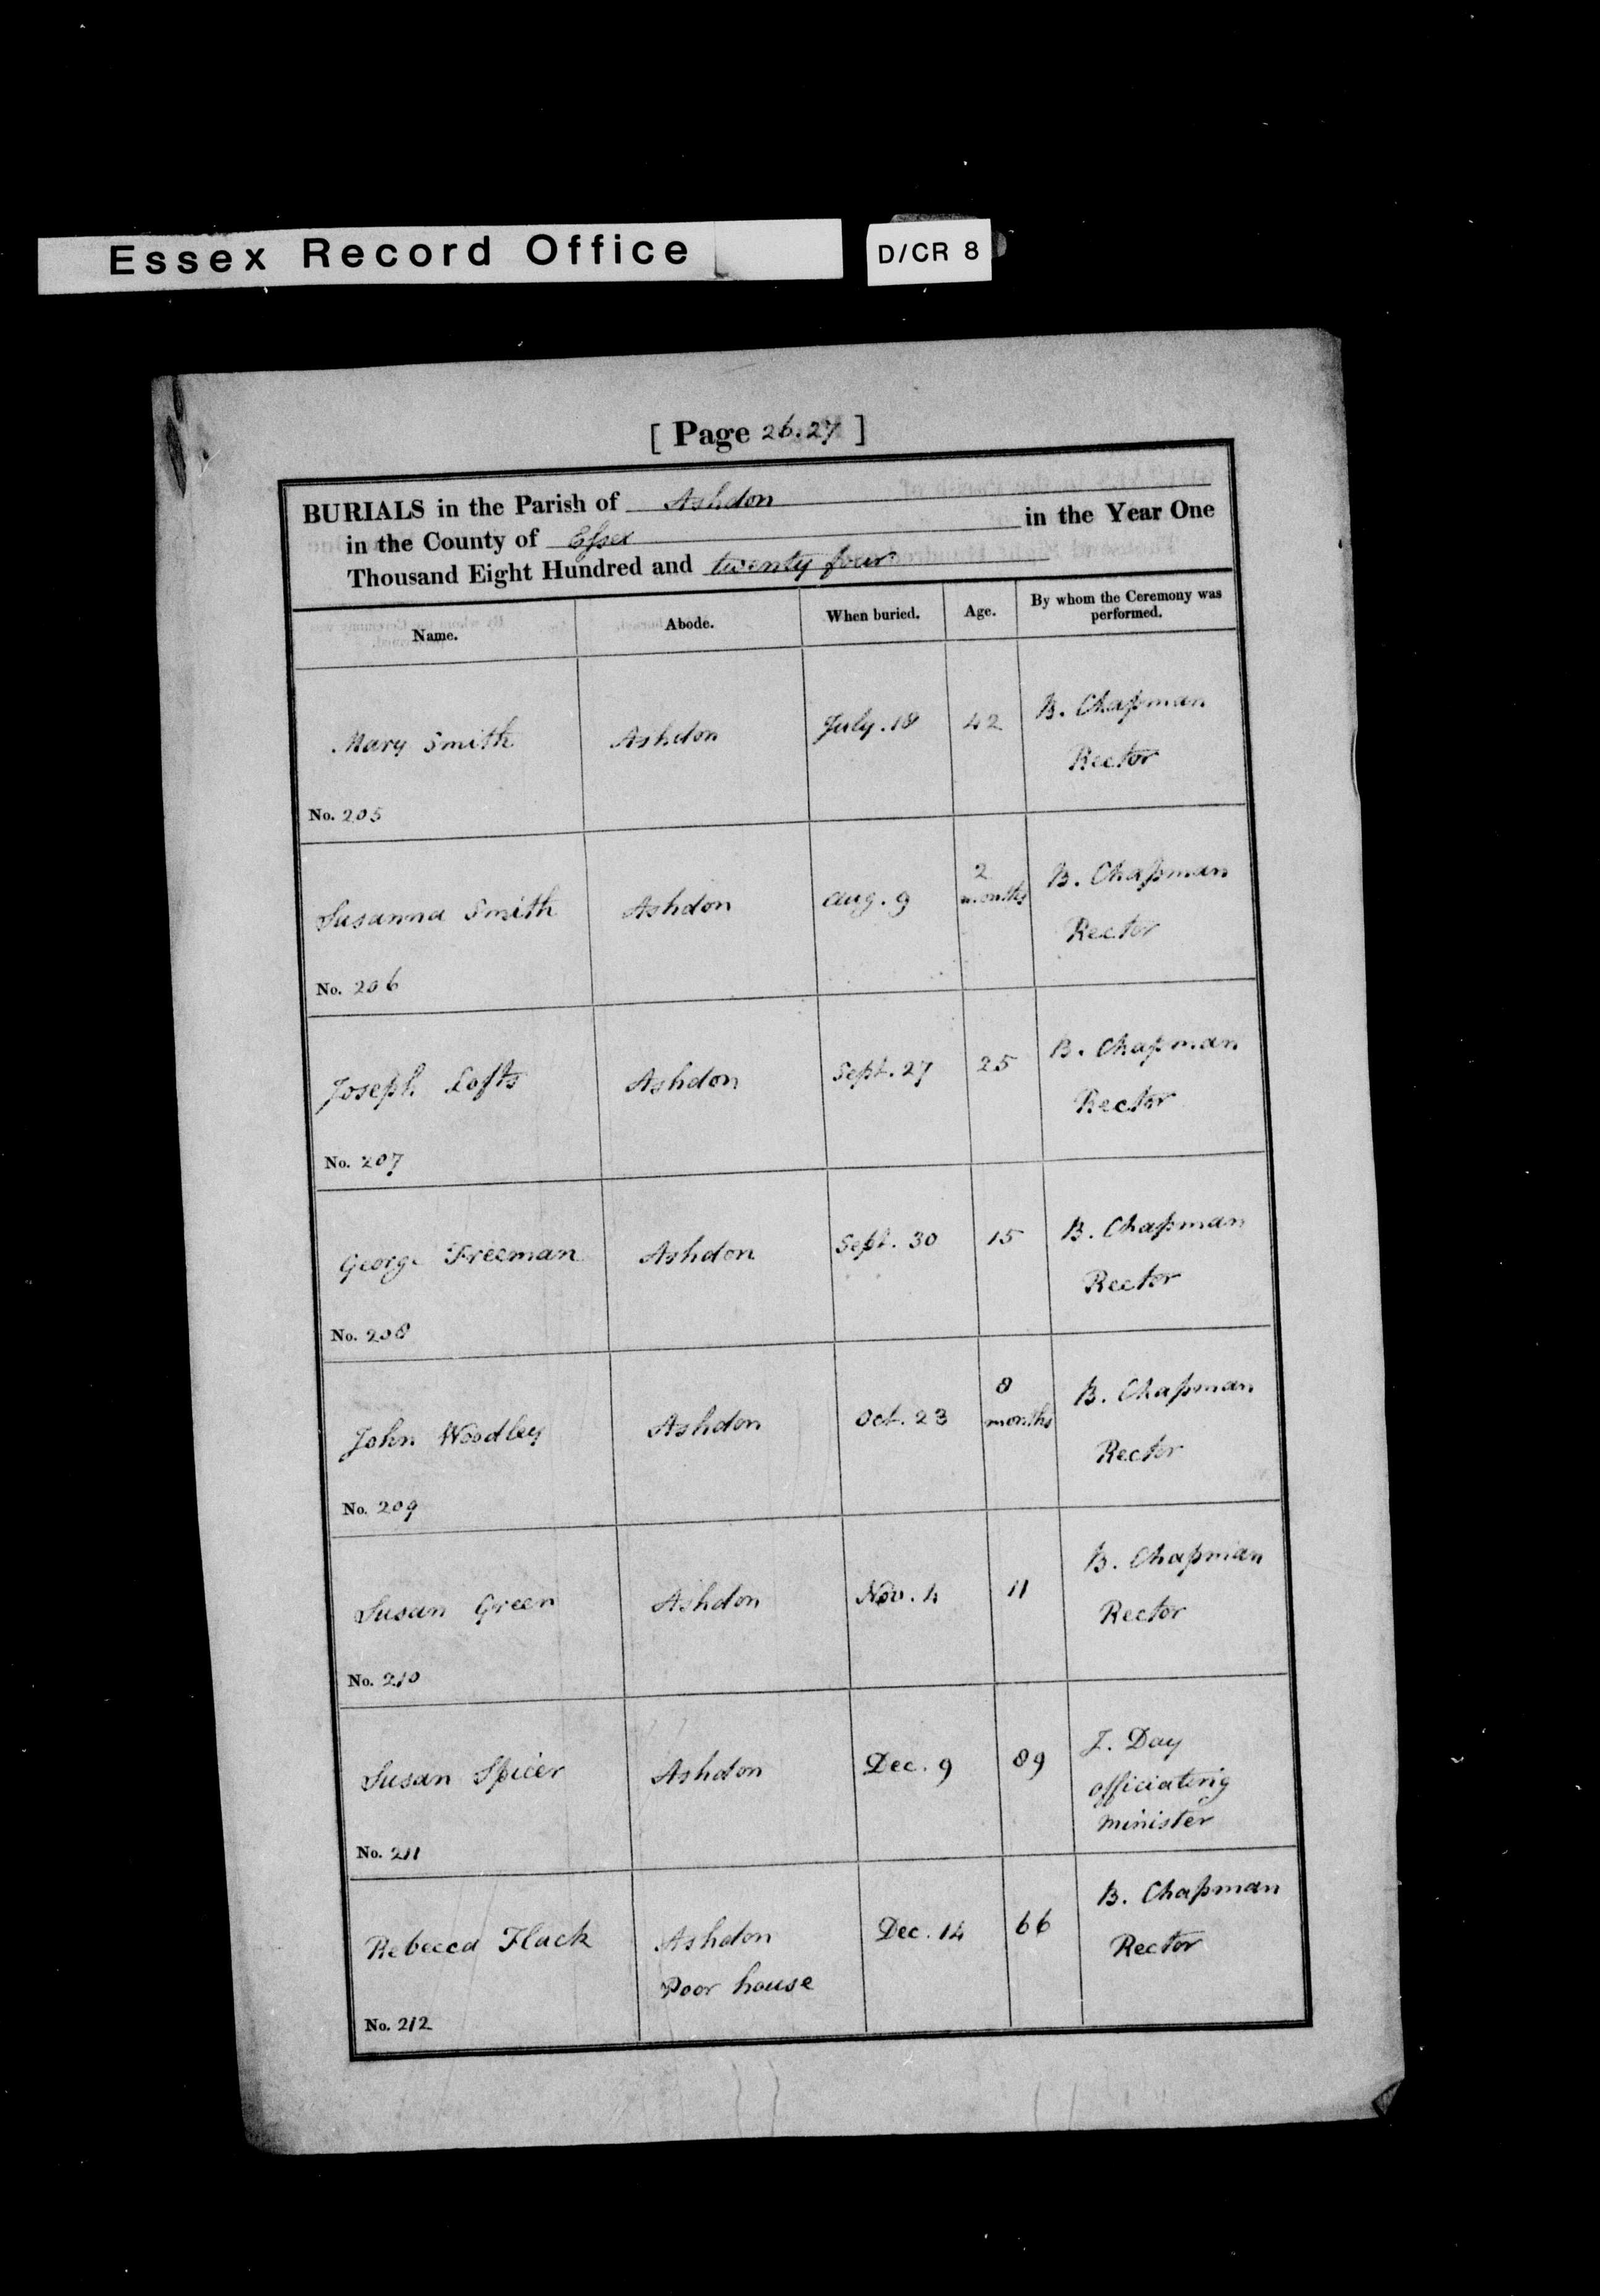 Essex Record Office
D/CR 8
[ Page 26.27 ]
BURIALS in the Parish of Ashdon
in the County of Essex in the Year One
Thousand Eight Hundred and twenty four
Name. Abode. When buried. Age. By whom the Ceremony was performed.
Mary Smith Ashdon July. 18 42 B. Chapman
Rector
No. 205
Susanna Smith Ashdon Aug. 9 2 months B. Chapman
Rector
No. 206
Joseph Lofts Ashdon Sept. 27 25 B. Chapman
Rector
No. 207
George Freeman Ashdon Sept. 30 15 B. Chapman
Rector
No. 208
John Woodley Ashdon Oct. 23 8 months B. Chapman
Rector
No. 209
Susan Green Ashdon Nov. 4 11 B. Chapman
Rector
No. 210
Susan Spicer Ashdon Dec. 9 89 J. Day
officiating
minister
No. 211
Rebecca Flack Ashdon Dec. 14 66 B. Chapman
Poor house Rector
No. 212